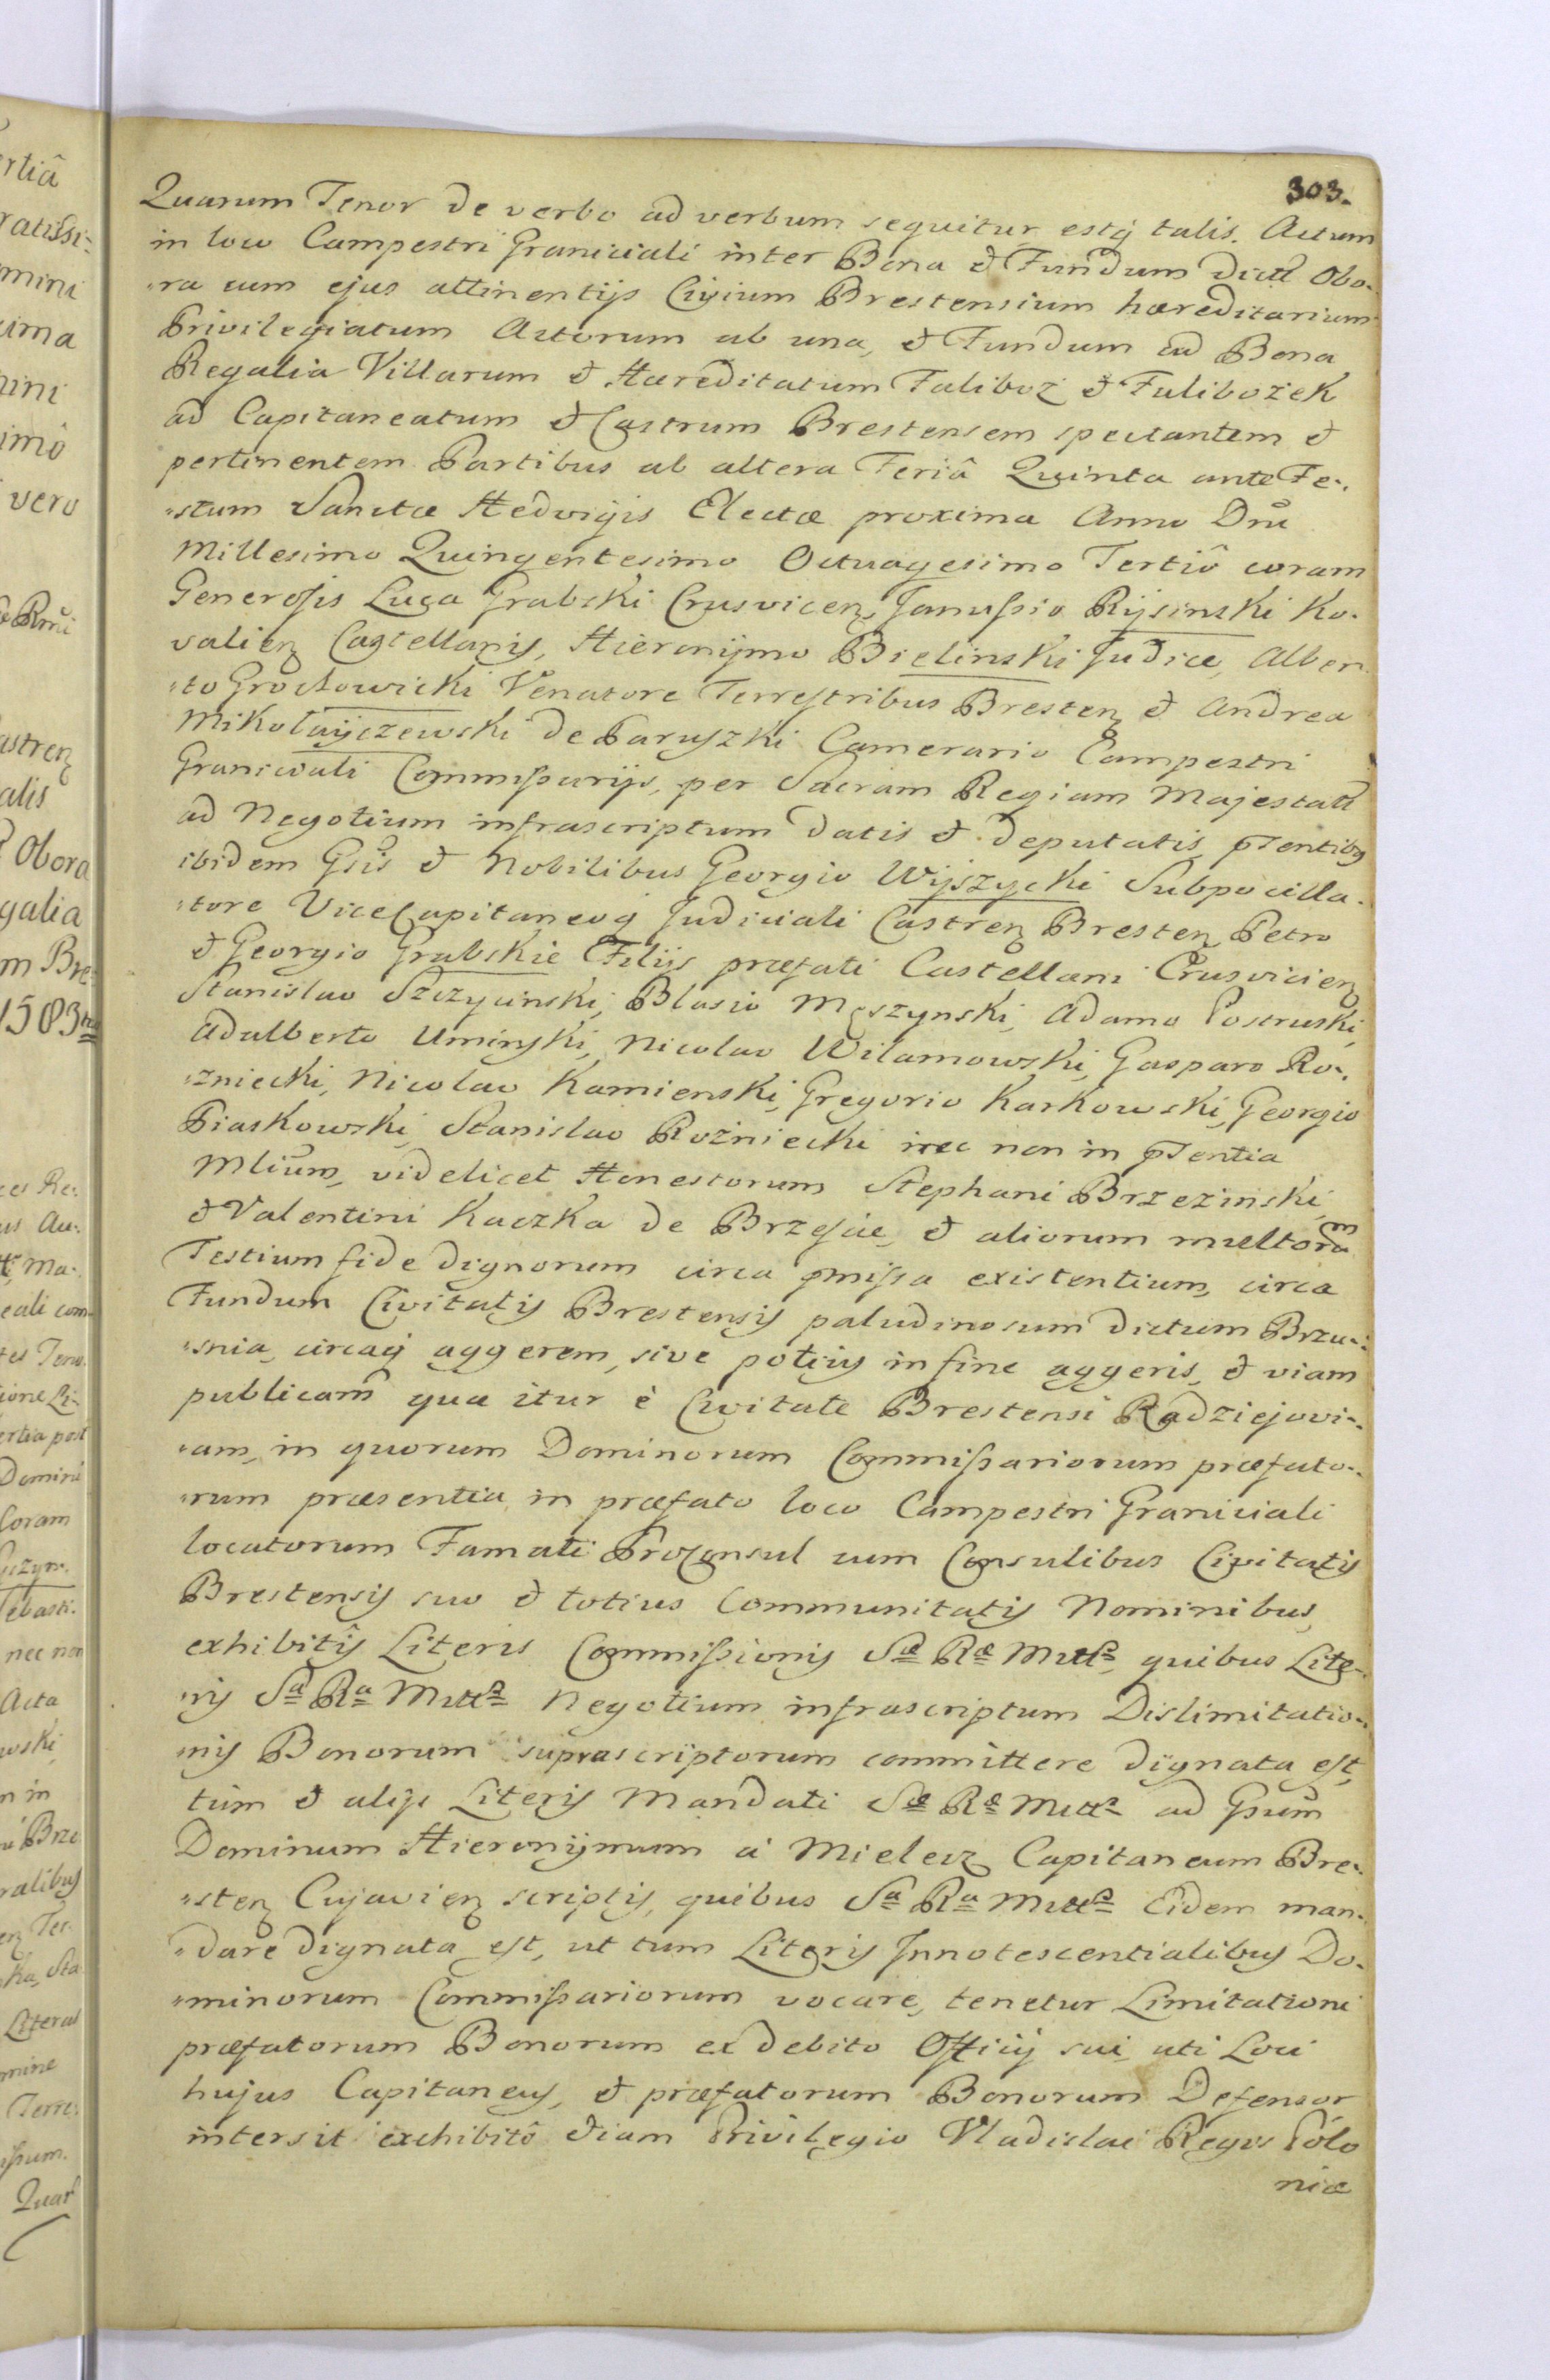 303.
Quarum Tenor de verbo ad verbum sequitur estq́ talis. Actum
in loco Campestri Graniciali inter Bona & Fundum dictũ Obo-
"ra cum ejus attinentijs Civium Brestensium hæreditarium
Privilegiatum Actorum ab una, & Fundum ad Bona
Regalia Villarum & Hæreditatum Faliboż & Falibożek
ad Capitaneatum & Castrum Brestensem spectantem &
pertinentem Partibus ab altera Feriâ Quinta ante Fe-.
"stum Sanctæ Hedvigis Electæ proxima Anno Dnĩ
Millesimo Quingentesimo Octuagesimo Tertiô coram
Generosis Luca Grabski Crusvicenꝫ, Janussio Rijsinski Ko-
valienꝫ Castellanis, Hieronijmo Bielinski Judice, Alber-
"to Grochowicki Venatore Terrestribus Brestenꝫ & Andrea
Mikołayczewski de Paruszki Camerario Campestri
Graniciali Commissarijs, per Sacram Regiam Majestatẽ
ad Negotium infrascriptum datis & deputatis, pñtentibꝰ
ibidem Gsĩs & Nobilibus Georgio Wijszycki Subpocilla-
"tore ViceCapitaneoq́ Judiciali Castrenꝫ Brestenꝫ Petro
& Georgio Grabskie Filijs præfati Castellani Crusvicienꝫ
Stanislao Szczycinski, Blasio Męszynski, Adamo Postruski,
Adalberto Uminski, Nicolao Wilamowski, Gasparo Ro-.
"zniecki, Nicolao Kamienski, Gregorio Karkowski, Georgio
Piaskowski, Stanislao Rożniecki nec non in pñtentia
Mliũm, videlicet Honestorum Stephani Brzezinski,
& Valentini Kaczka de Brzescie, & aliorum multorum
Testium fide dignorum circa pmissa existentium, circa
Fundum Civitatis Brestensis paludinosum dictum Brzu-.
"snia, circaq́ aggerem, sive potius in fine aggeris, & viam
publicam qua itur è Civitate Brestensi Radziejovi-.
"am, in quorum Dominorum Commissariorum præfato-.
"rum præsentia, in præfato loco Campestri Graniciali
locatorum Famati ProConsul cum Consulibus Civitatis
Brestensis suo & totius Communitatis Nominibus,
exhibitîs Literis Commissionis Sæ Ræ Mttis, quibus Lite-
"ris Sa Ra Mttis Negotium infrascriptum Dislimitatio-
"nis Bonorum suprascriptorum committere dignata est,
tùm & alijs Literis Mandati Sæ Ræ Mttis ad Gsũm
Dominum Hieronijmum à Mielecꝫ Capitaneum Bre-.
"stenꝫ Cujavienꝫ scriptis, quibus Sa Ra Mttis Eidem man-
"dare dignata est, ut cum Literis Innotescentialibus Do-
"minorum Commissariorum vocare, tenetur Limitationi
præfatorum Bonorum ex debito Officij sui, uti Loci
hujus Capitaneus, & præfatorum Bonorum Defensor
intersit exhibitô etiam Privilegio Vladislai Regis Polo
niæ